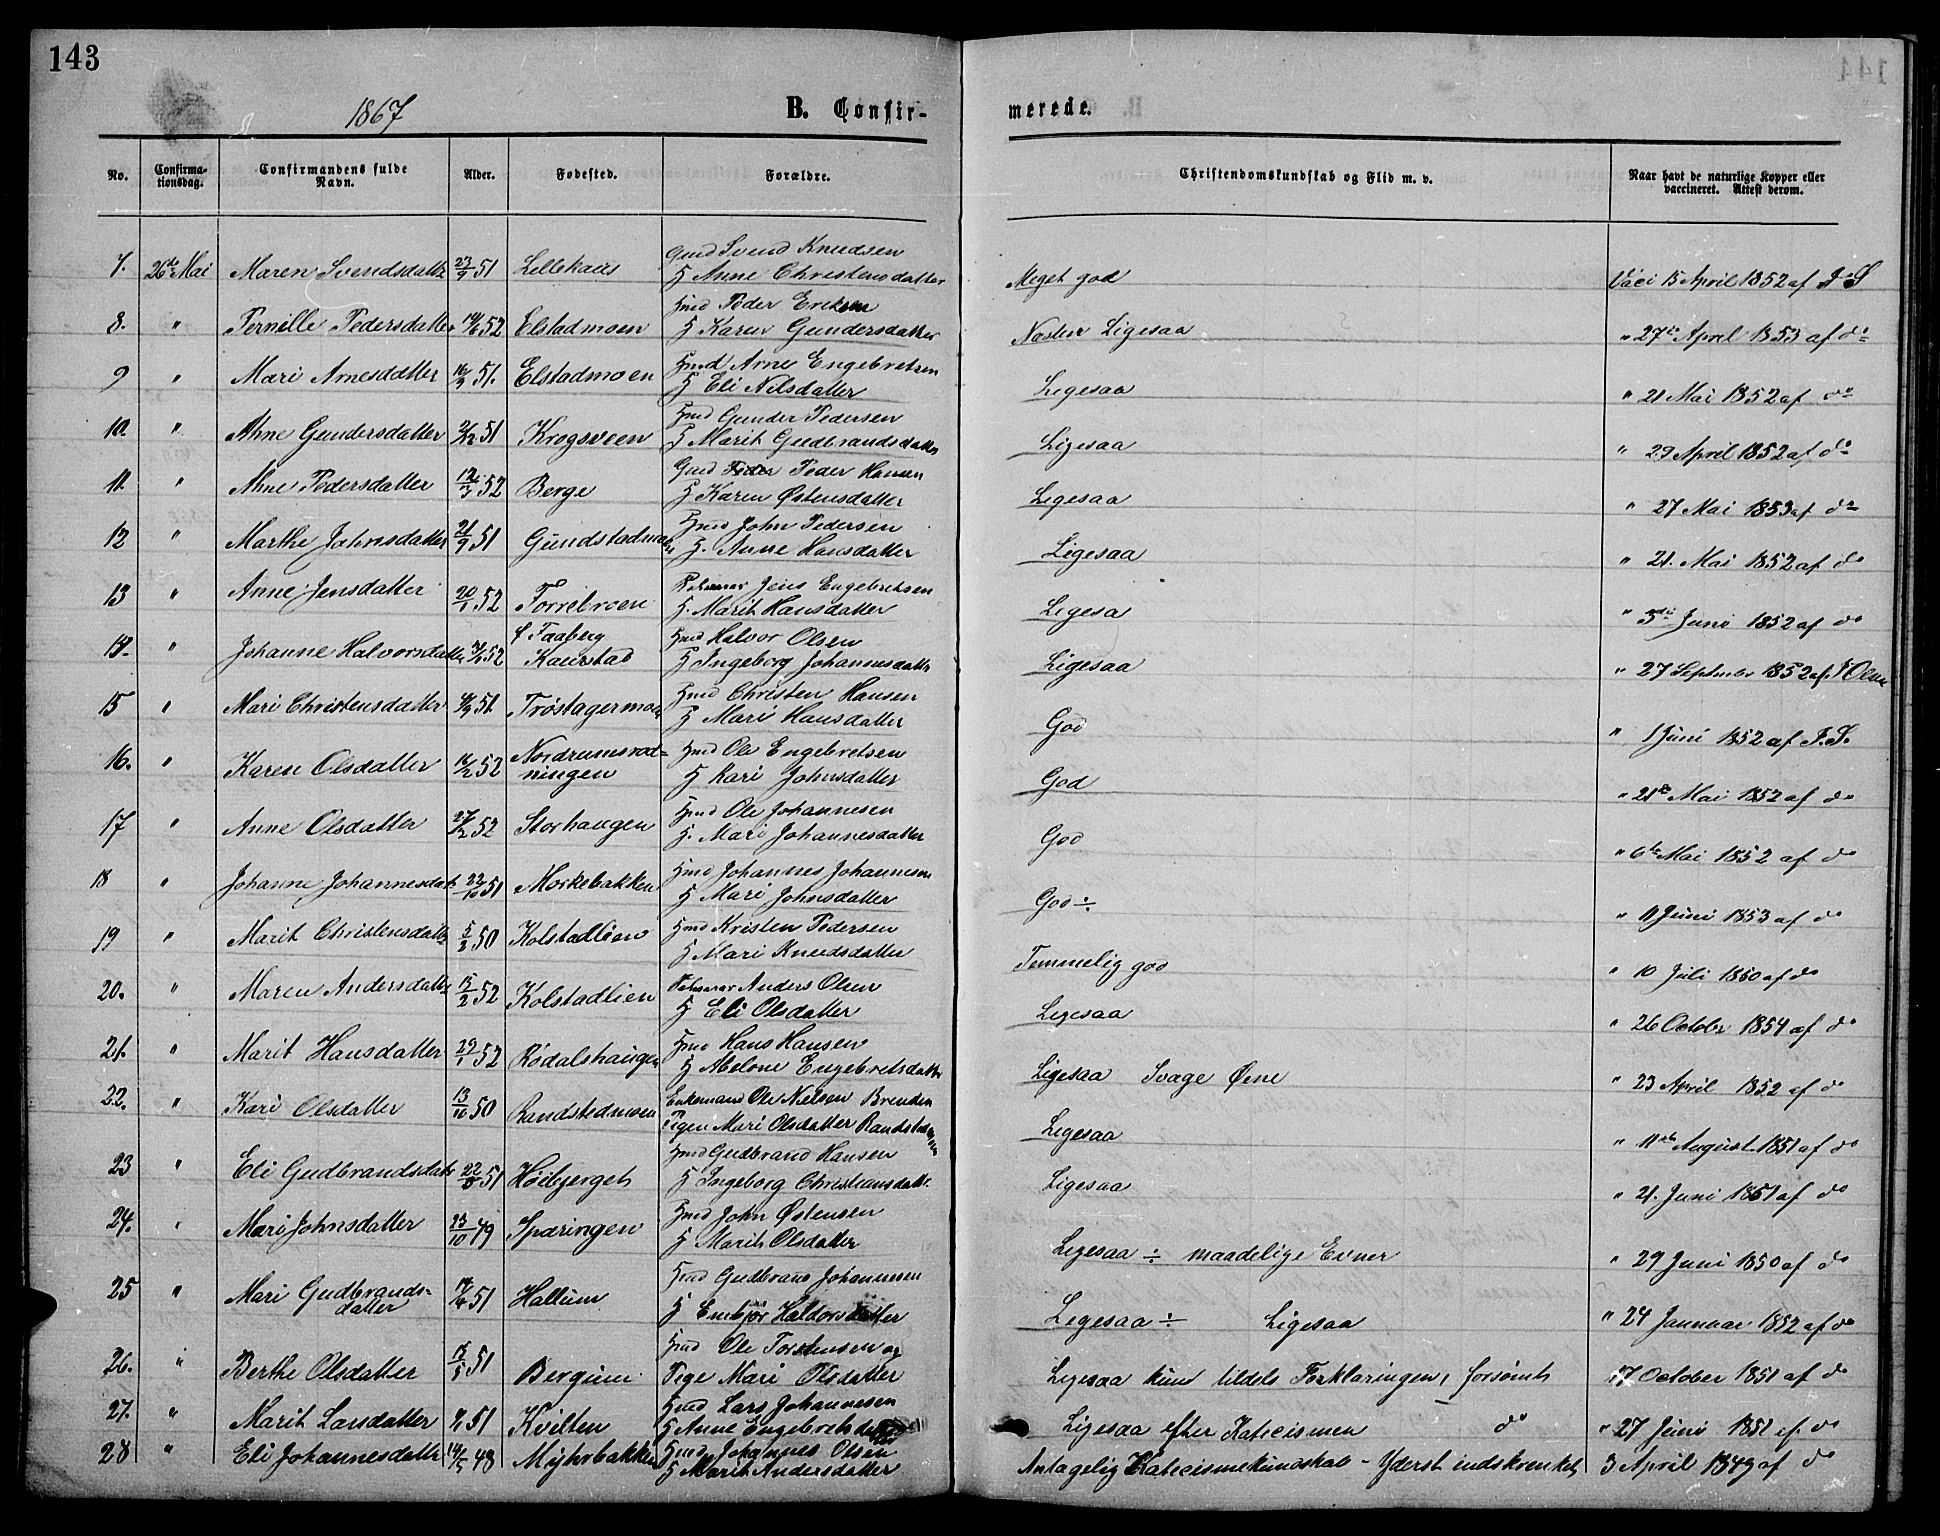 143
1867
B. Confir-
merede.
No.
Confirma-
tionsdag.
Confirmandens fulde
Navn.
Alder.
Fødested.
Forældre.
Christendomskundskab og Flid m. v.
Naar havt de naturlige Kopper eller
vaccineret. Attest derom.
7. 26de Mai Maren Svendsdatter 23/9 51 Lillekaus Gmd Svend Knudsen
H Anne Christensdatter
Meget god Vaci 15 April 1852 af J S
8. " Pernille Pedersdatter 52 Elstadmoen Hmd Peder Eriksen
H Karen Gundersdatter
Næsten Ligesaa " 27de April 1853 af do
9 " Mari Arnesdatter 51. Elstadmoen Hmd Arne Engebretsen
H Eli Nilsdatter
Ligesaa " 21 Mai 1852 af do
10. " Anne Gundersdatter 51 Krogsveen Hmd Gunder Pedersen
H Marit Gudbrandsdatter
Ligesaa " 29 April 1852 af do
11. " Anne Pedersdatter 52 Berge Gmd Peder Hansen
H Karen Østensdatter
Ligesaa " 27 Mai 1853 af do
12 " Marthe Johnsdatter 21/9 51 Gundstadmoen Hmd John Pedersen
H. Anne Hansdatter
Ligesaa " 21. Mai 1852 af do
13 " Anne Jensdatter 20/1 52 Jens Engebretsen
H. Marit Hansdatter
Ligesa " 3die Juni 1852 af do
14. " Johanne Halvorsdatter 52 f Faaberg
Kaurstad Hmd Halvor Olsen
H Ingeborg Johannesdatter
Ligesaa " 27 September 1852 af Olsen
15 " Mari Christensdatter 51. Trøstagermoen Hmd Christen Hansen
H Mari Hansdatter
God " 1 Juni 1852 af J. S.
16. " Karen Olsdatter 16/2 52 Nordrumsrød-
ningen Hmd Ole Engebretsen
H Kari Johnsdatter
God " 21de Mai 1852 af do
17 " Anne Olsdatter 27/2 52 Storhaugen Hmd Ole Johannesen
H. Mari Johannesdatter
God " 6te Mai 1852 af do
18 " Johanne Johannesdatt 22/10 51 Morkebakken Hmd Johannes Johannesen
H Mari Johnsdatter
God ÷ " 11 Juni 1853 af do
19 " Marit Christensdatter 5/2 50 Kolstadlien Hmd Kristen Pedersen
H Mari Knudsdatter
Temmelig god " 10 Juli 1850 af do
20. " Maren Andersdatter 15/2 52 Kolstadlien Anders Olsen
H Eli Olsdatter
Ligesaa " 26 October 1854 af do
21. " Marit Hansdatter 29/1 52 Rødalshaugen Hmd Hans Hansen
H Abelone Engebretsdatter
Ligesaa Svage Øine " 23 April 1852 af do
22. " Kari Olsdatter 13/10 50 Randstedmoen Enkemand Ole Nielsen Brenden
Pigen Mari Olsdatter Randstedmoen
Ligesaa " 11te August 1851 af do
23 " Eli Gudbrandsdatt 51 Høibjerget Hmd Gudbrand Hansen
H Ingeborg Christiansdatt.
Ligesaa " 21. Juni 1851 af do
24. " Mari Johnsdatter 23/10 49 Sparingen Hmd John Østensen
H Marit Olsdatter
Ligesaa ÷ maadelige Evner " 29 Juni 1850 af do
25 " Mari Gudbrands-
datter 51 Hallum Hmd Gudbrand Johannesen
H Embjør Haldorsdatter
Ligesaa ÷ Ligesaa " 24 Januar 1852 af do
26. " Berthe Olsdatter 51 Bergum Hmd Ole Torstensen og
Pige Mari Olsdatter
Ligesaa kun tildels Forklaringen, forsømt 17 October 1851 af do
27. " Marit Larsdatter 51 Kvilten Hmd Lars Johannesen
H Anne Engebretsdatter
Ligesaa efter Katecismen do " 27 Juni 1851 af do
28 " Eli Johannesdatter 14/5 48 Myhrbakken Hmd Johannes Olsen
H Marit Andersdatter
Antagelig Katecismekundskab - Yderst indskrenket 3 April 1849 af do